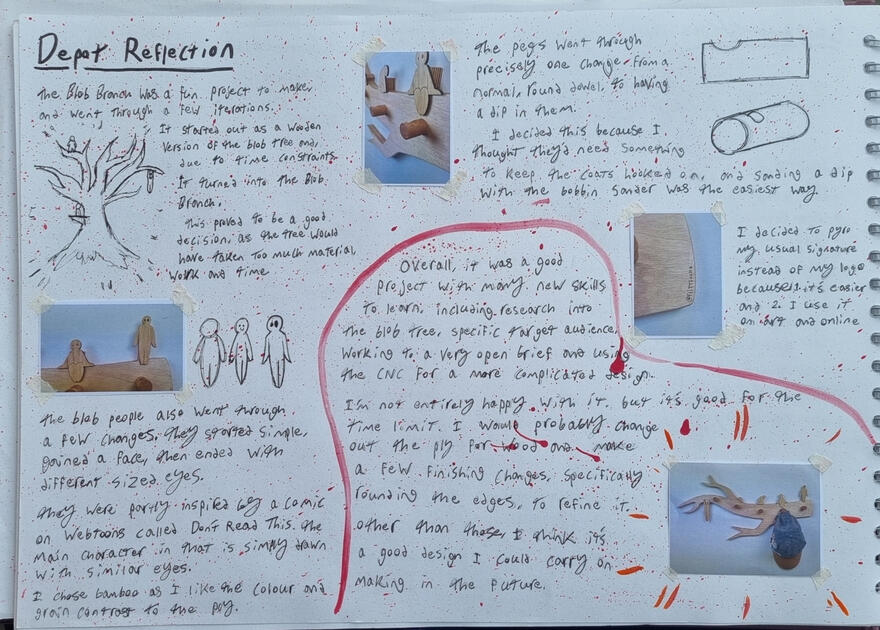 Depot Reflection
The Blob Branch was a fun project to make,
and went through a few iterations.
It started out as a wooden
version of the blob tree and,
due to time constraints
It turned into the Blob
Branch.
This proved to be a good
decision, as the tree would
have taken too much material,
work and time
The blob people also went through
a few changes, they started simple,
gained a face, then ended with
different sized eyes.
They were partly inspired by a comic
on Webtoons called Don't Read This. The
main character in that is simply drawn
with similar eyes.
I chose bamboo as I like the colour and
grain contrast to the ply.
The pegs went through
precisely one change. From a
normal, round dowel, to having
a dip in them.
I decided this because I
thought they'd need something
to keep the coats hooked on, and sanding a dip
with the bobbin sander was the easiest way.
I decided to pyro
my usual signature
instead of my logo
because 1. it's easier
and 2. I use it
on art and online
Overall, it was a good
project with many new skills
to learn, including research into
the blob tree, specific target audience,
working to a very open brief and using
the CNC for a more complicated design.
I'm not entirely happy with it, but it's good for the
time limit. I would probably change
out the ply for wood and make
a few finishing changes, specifically
rounding the edges, to refine it.
other than those, I think it's
a good design I could carry on
making in the future.